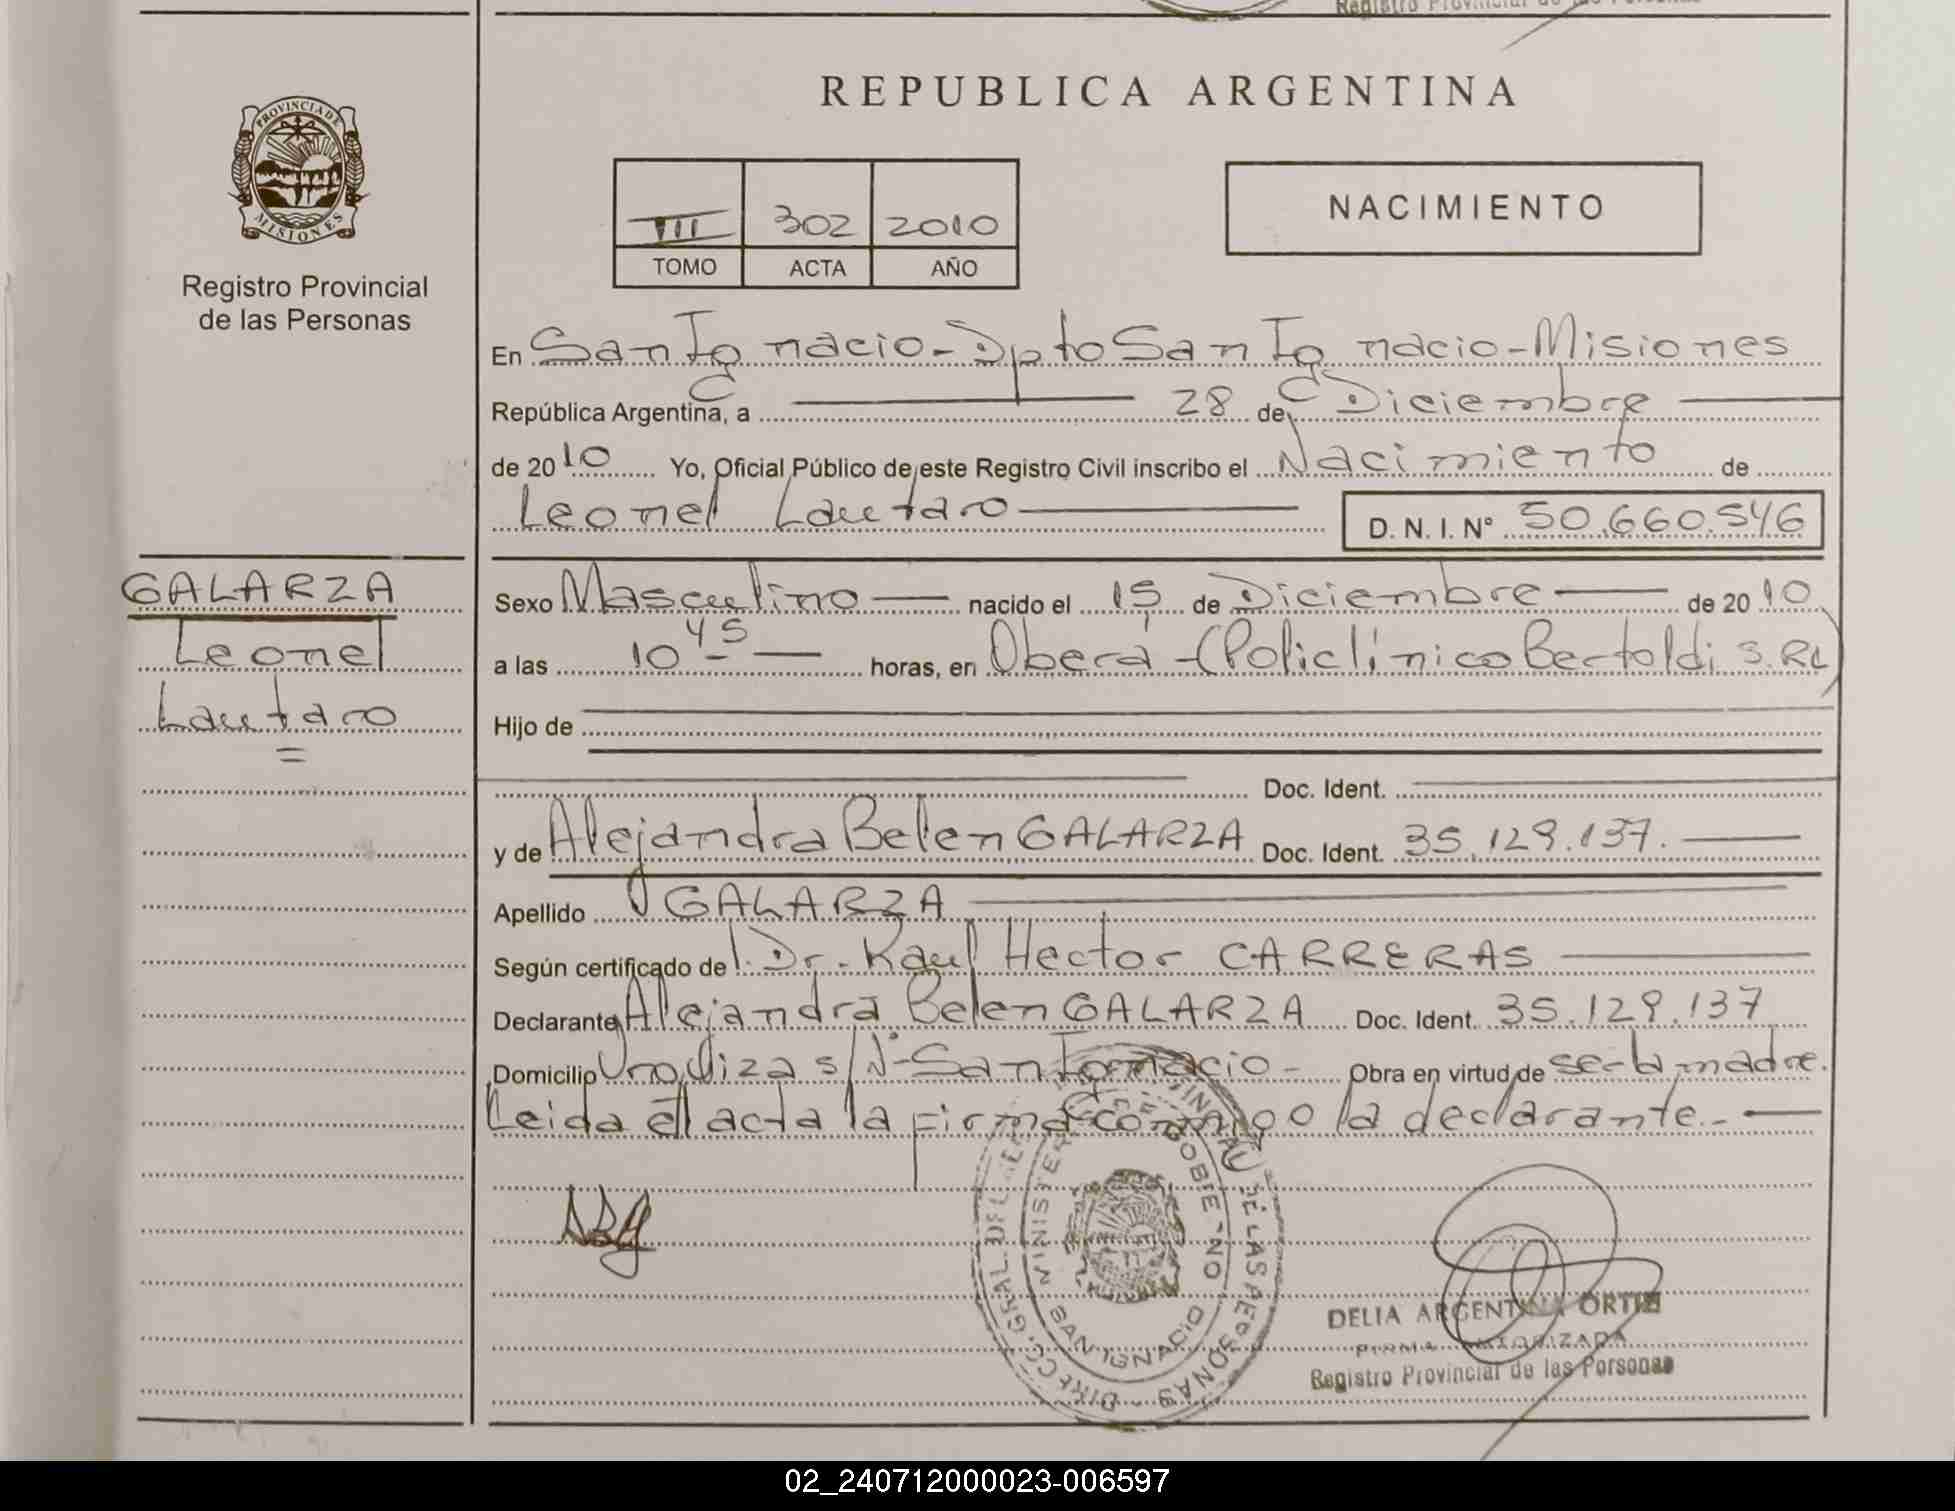 Registro Provincial de las Personas
PROVINCIA DE MISIONES
Registro Provincial
de las Personas
REPUBLICA ARGENTINA
III 302 2010
TOMO ACTA AÑO
NACIMIENTO
En San Ignacio - Dpto San Ignacio - Misiones
República Argentina, a 28 de Diciembre
de 2010 Yo, Oficial Público de este Registro Civil inscribo el Nacimiento de
Leonel Lautaro D. N. I. N° 50.660.546
GALARZA
Leonel
Lautaro
Sexo Masculino nacido el 15 de Diciembre de 2010
a las 10 45 horas, en Oberá - (Policlínico Bertoldi S.RL)
Hijo de
Doc. Ident.
y de Alejandra Belen GALARZA Doc. Ident. 35.129.137.
Apellido GALARZA
Según certificado de Dr. Raul Hector CARRERAS
Declarante Alejandra Belen GALARZA Doc. Ident. 35.129.137
Domicilio s/N° - San Ignacio - Obra en virtud de ser la madre.
Leida el acta la firma conmigo la declarante.-
DIRECC. GRAL. DEL REG. DE LAS PERSONAS
SAN IGNACIO
DELIA ARGENTINA ORTIZ
FIRMA AUTORIZADA
Registro Provincial de las Personas
02_240712000023-006597